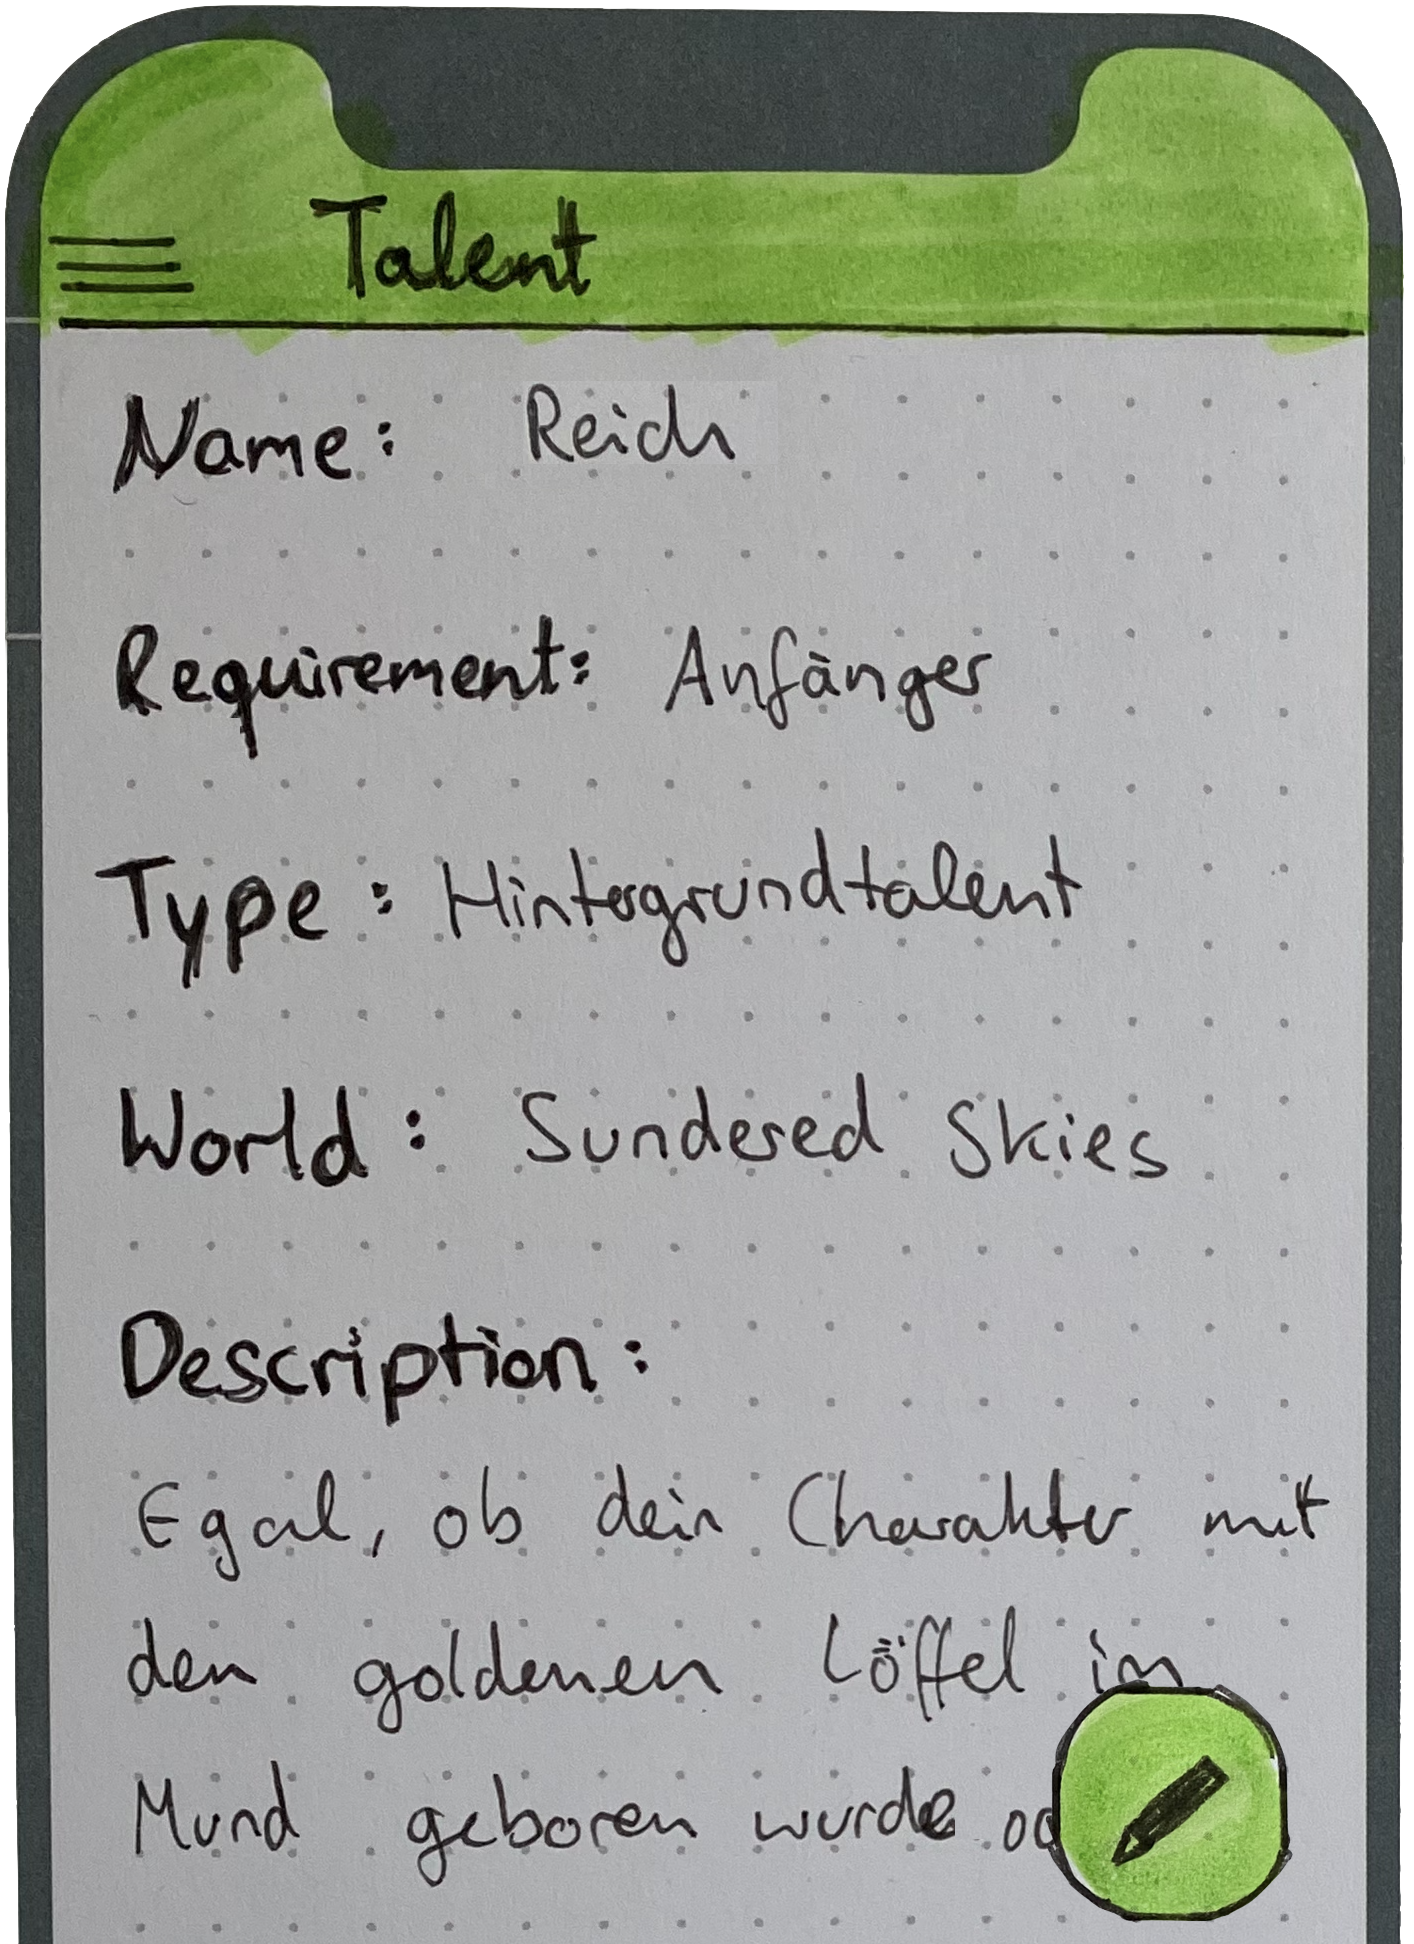 Talent
Name: Reich
Requirement: Anfänger
Type: Hintergrundtalent
World: Sundered Skies
Description:
Egal, ob dein Charakter mit
den goldenen Löffel im
Mund geboren wurde